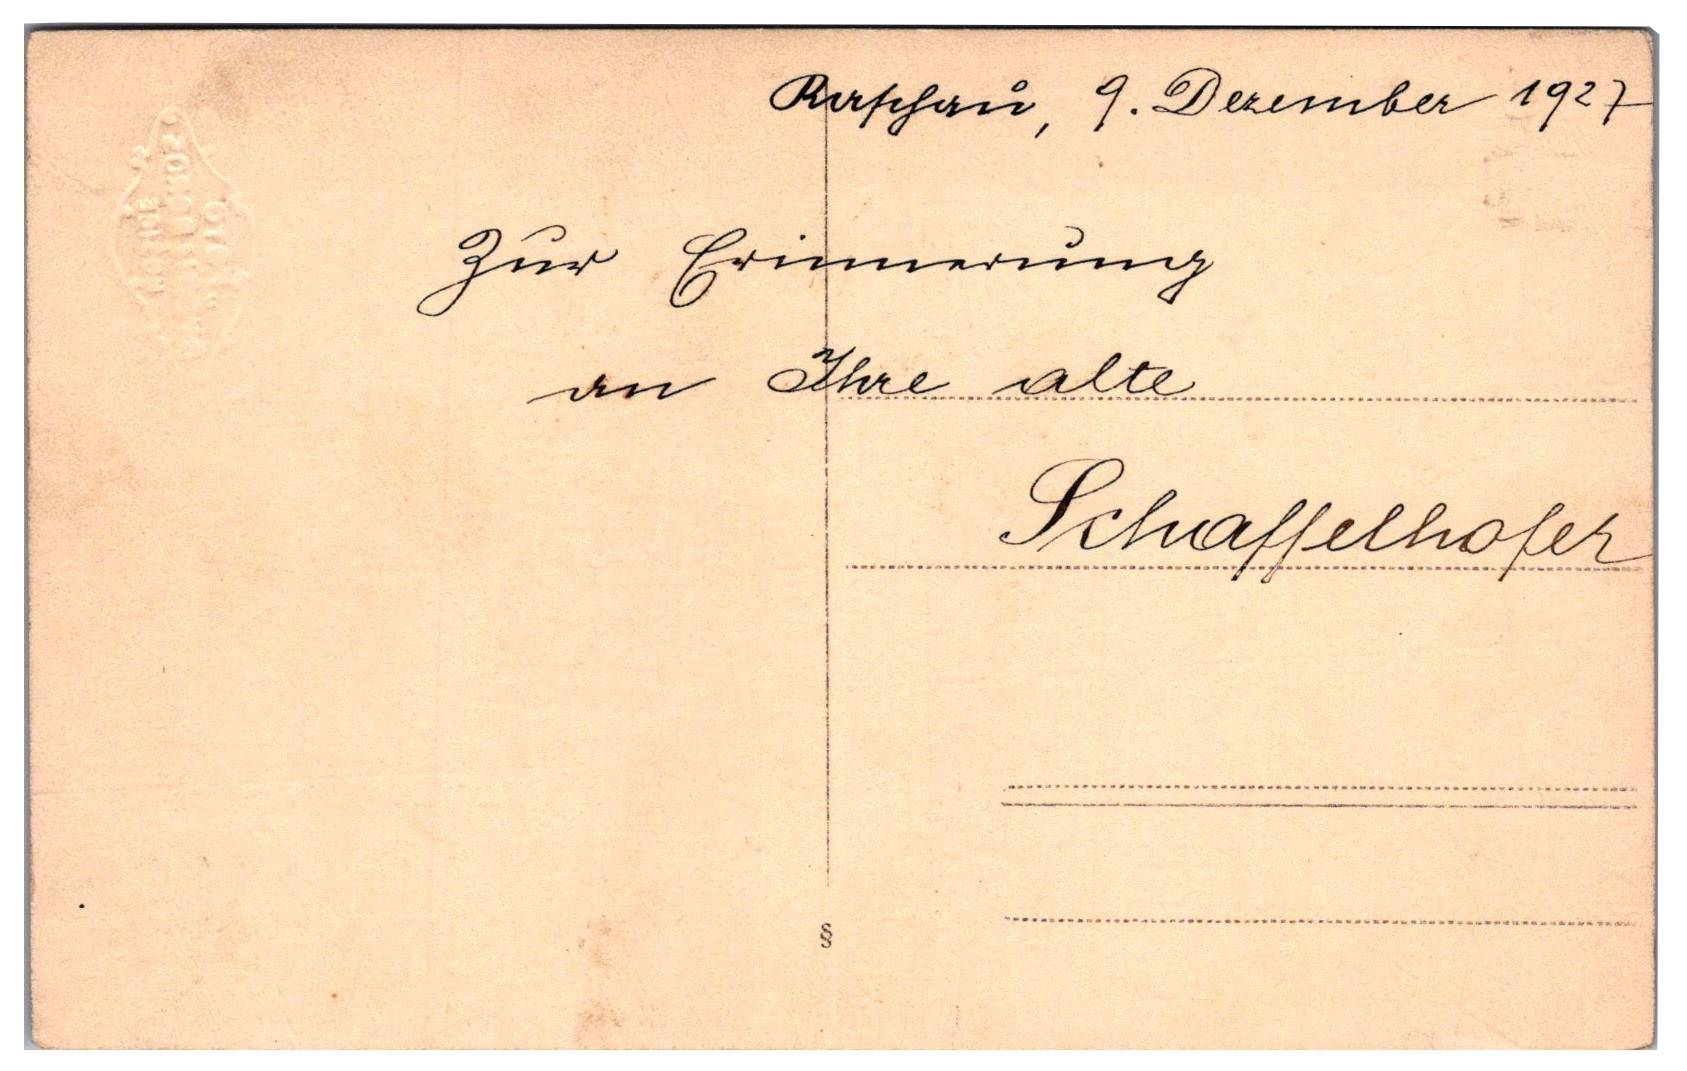 Raschau, 9. Dezember 1927
Zur Erinnerung
an Ihre alte
Schaffelhofer
§